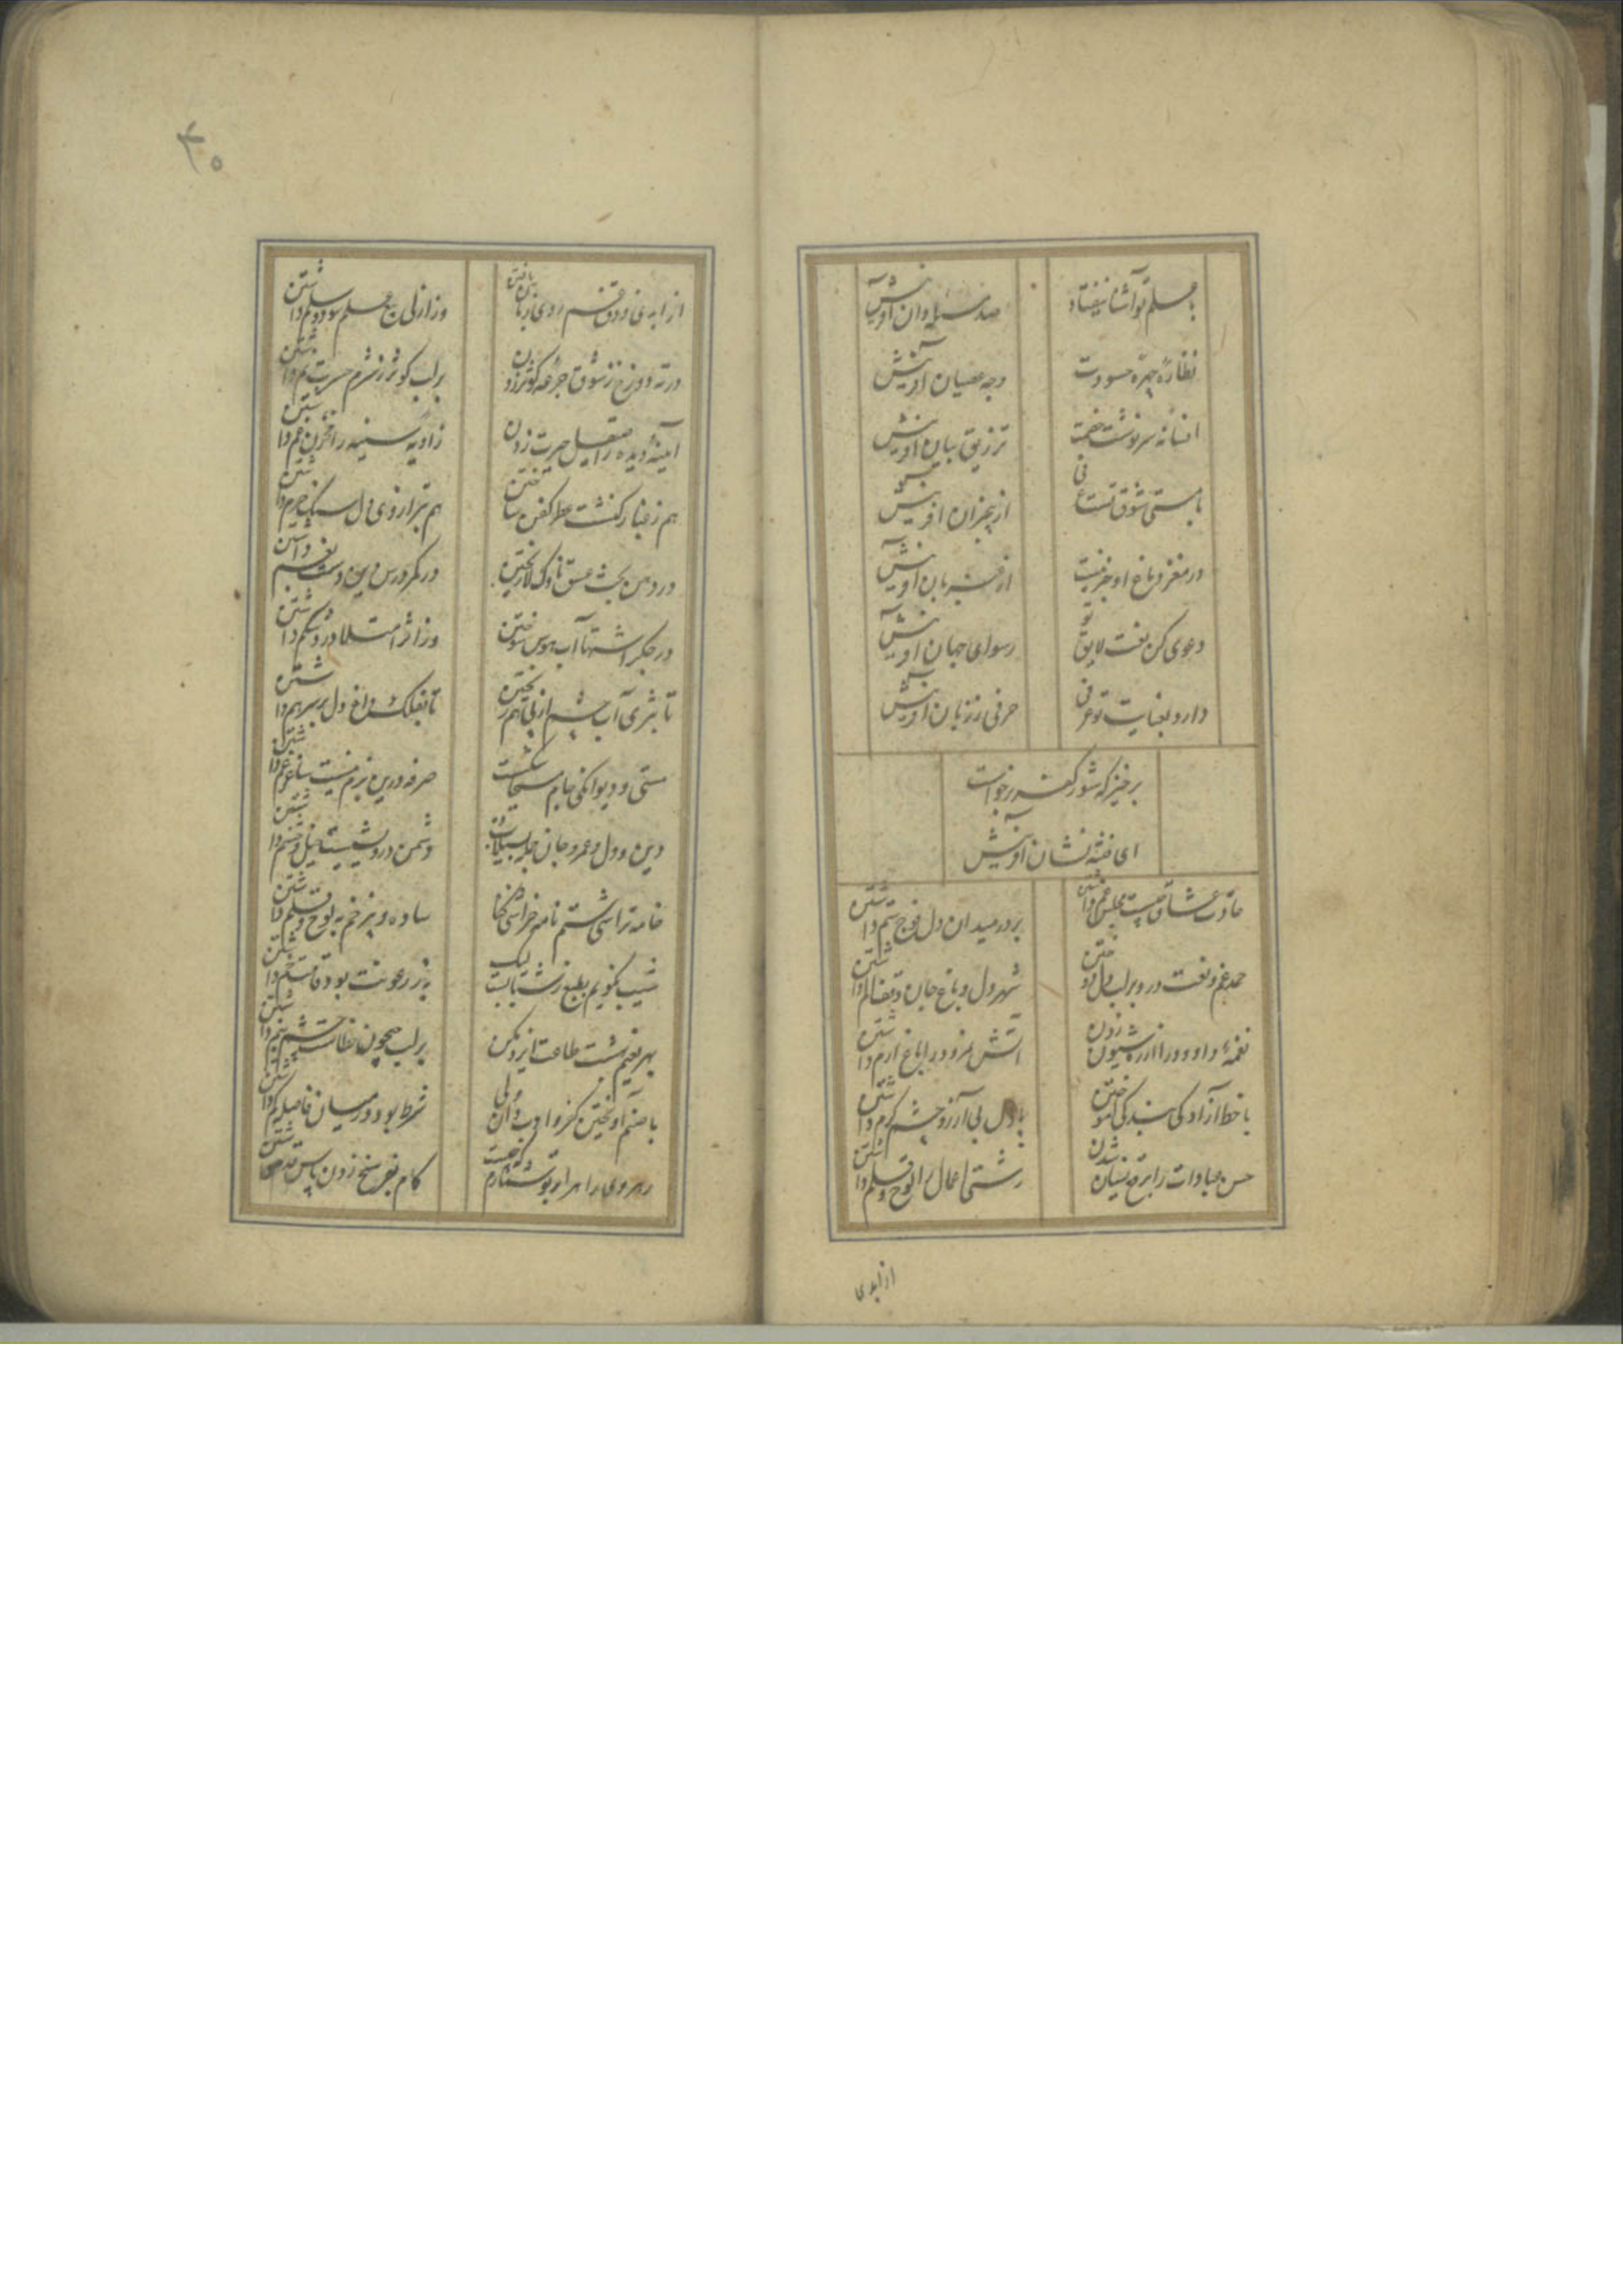 با علم تو آشنا نیفتاد
صد مسئله دان آفرینش
نظاره چهره حسودت
وجه عصیان آفرینش
افسانه سرنوشت خصمت
تزریق بیان آفرینش
با مستی شوق تست عرفی
از بیخبران آفرینش
در مغز دماغ او جز نیست
از آفرینش
دعوی کن نعت لایق تو
رسوای جهان آفرینش
دارد بعنایت تو عرفی
حرفی ز زبان آفرینش
برخیز که شور کفر برخواست
ای فتنه نشان آفرینش
عادت عشاق چیست مجلس غم داشتن
بر در میدان دل فوج ستم داشتن
حمد غم و نعت درد بر لب دل دوختن
شهر دل و باغ جان وقف الم داشتن
نغمه داود را از ره شیون زدن
آتش نمرود را باغ ارم داشتن
با خط آزادگی بندگی آموختن
با دل بی آرزو چشم کرم داشتن
حسن عبادات را برقع نسیان شدن
زشتی اعمال را لوح و قلم داشتن
از ابدی
۳۰
از ابدی ذوق غم روی زیان یافتن
وز ازلی علم سود و سلم داشتن
در ته دوزخ ز شوق جرعه کوثر زدن
بر لب کوثر ز شرم حسرت نم داشتن
آینه دیده را صیقل حیرت زدن
زاویه سینه را مخزن غم داشتن
هم ز غبار کنشت عطر کفن ساختن
هم بترازوی دل سنگ حرم داشتن
در دهن بحث عشق ناوک لا ریختن
در کمر درس دین دست نعم داشتن
در جگر اشتها آب هوس سوختن
وز اثر امتلا درد شکم داشتن
تا بثری آب چشم از پی هم ریختن
تا بفلک داغ دل بر سر هم داشتن
مستی و دیوانگی جام مسیحا شکست
صرفه درین بزم نیست ساغر جم داشتن
دین و دل و عمر و جان جمله بسیلاب ده
دشمن درویشیست خیل و حشم داشتن
خامه تراشی ستم نامه خراشی خطا
ساده و پر زخم به لوح و قلم داشتن
شیب نکویم بطبع زشت نباید لیک
به ز رعونت بود قامت خم داشتن
بهر نعیم بهشت طاعت ایزد مکن
بر لب جیحون خطاست چشم بنم داشتن
با صنم آویختن کفر و ادب دان ولی
شرط بود در میان فاصله کم داشتن
رهروی راهرو تو شمارم که چیست
کام بفرسخ زدن پاس قدم داشتن